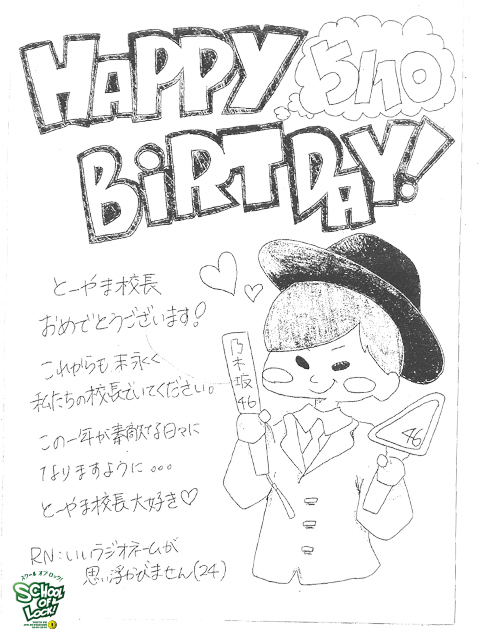 HAPPY
5/10
BiRTDAY!
とーやま校長
おめでとうございます!
これからも末永く
私たちの校長でいてください。
この一年が素敵な日々に
なりますように...
とーやま校長大好き♡
RN:いいラジオネームが
思い浮かびません(24)
乃木坂
46
46
スクール オブ ロック!
SCHOOL
OF
LOCK!